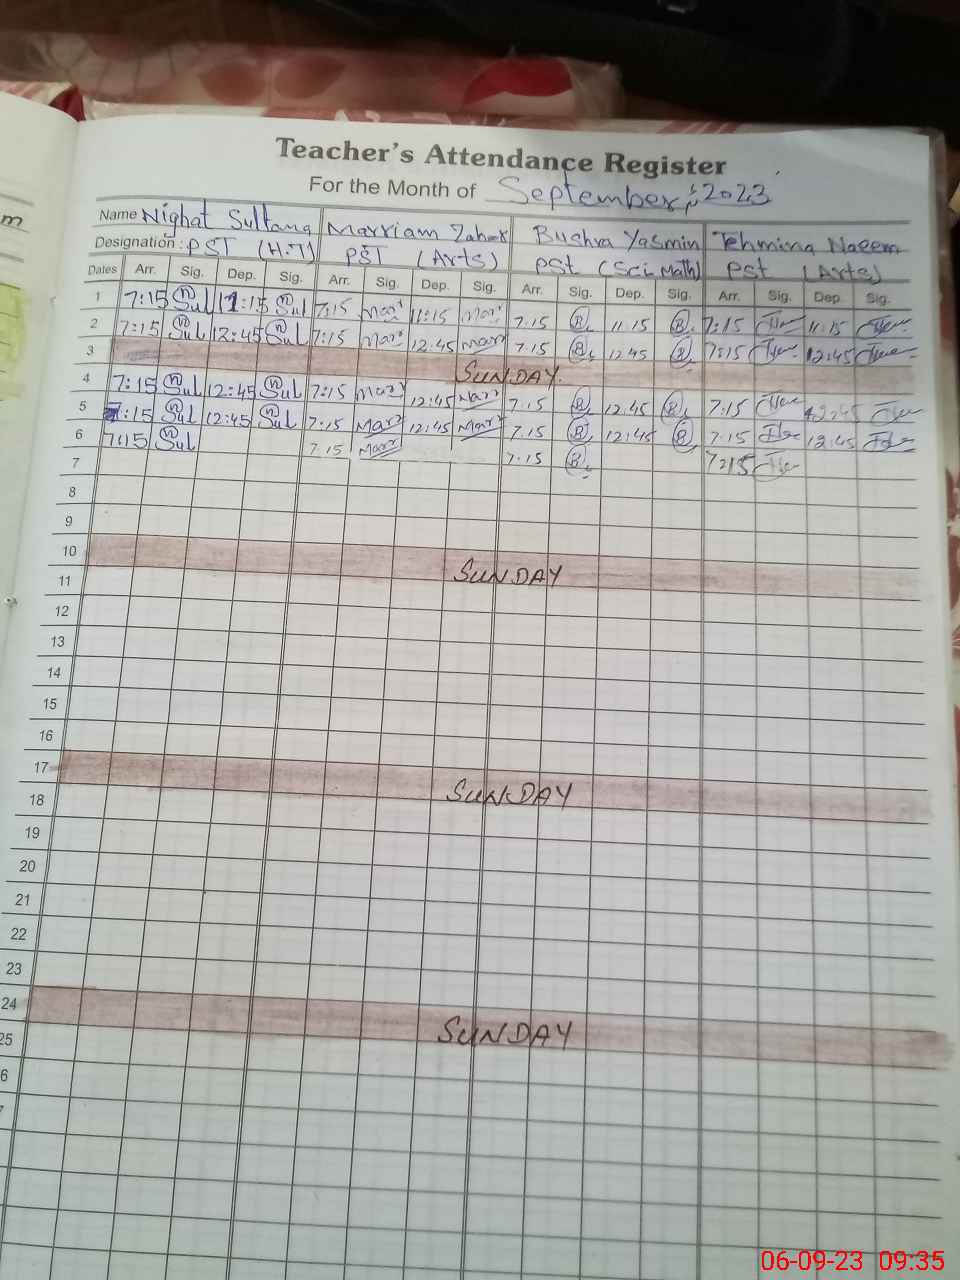 Teacher's Attendance Register
For the Month of September, 2023
m
Name Nighat Sultana Marriam Zaher Bushra Yasmin Tehmina Naeem
Designation: PST (H.T) PST (Arts) PST (Sci Math) PST (Arts)
Dates Arr. Sig. Dep. Sig. Arr. Sig. Dep. Sig. Arr. Sig. Dep. Sig. Arr. Sig. Dep. Sig.
1 7:15 Sul 11:15 Sul 7:15 Mar 11:15 Mar 7.15 B. 11.15 B. 7:15 11.15
2 7:15 Sul 12:45 Sul 7:15 Mar 12.45 Mar 7.15 B. 12.45 B. 7:15 12:45
3 SUNDAY
4 7:15 Sul 12:45 Sul 7:15 Mar 12:45 Mar 7.15 B. 12.45 B. 7:15 12:45
5 7:15 Sul 12:45 Sul 7:15 Mar 12:45 Mar 7.15 B. 12:45 B. 7.15 12:45
6 7:15 Sul 7.15 Mar 7.15 B. 7:15
7
8
9
10 SUNDAY
11
12
13
14
15
16
17 SUNDAY
18
19
20
21
22
23
24 SUNDAY
25
6
06-09-23 09:35